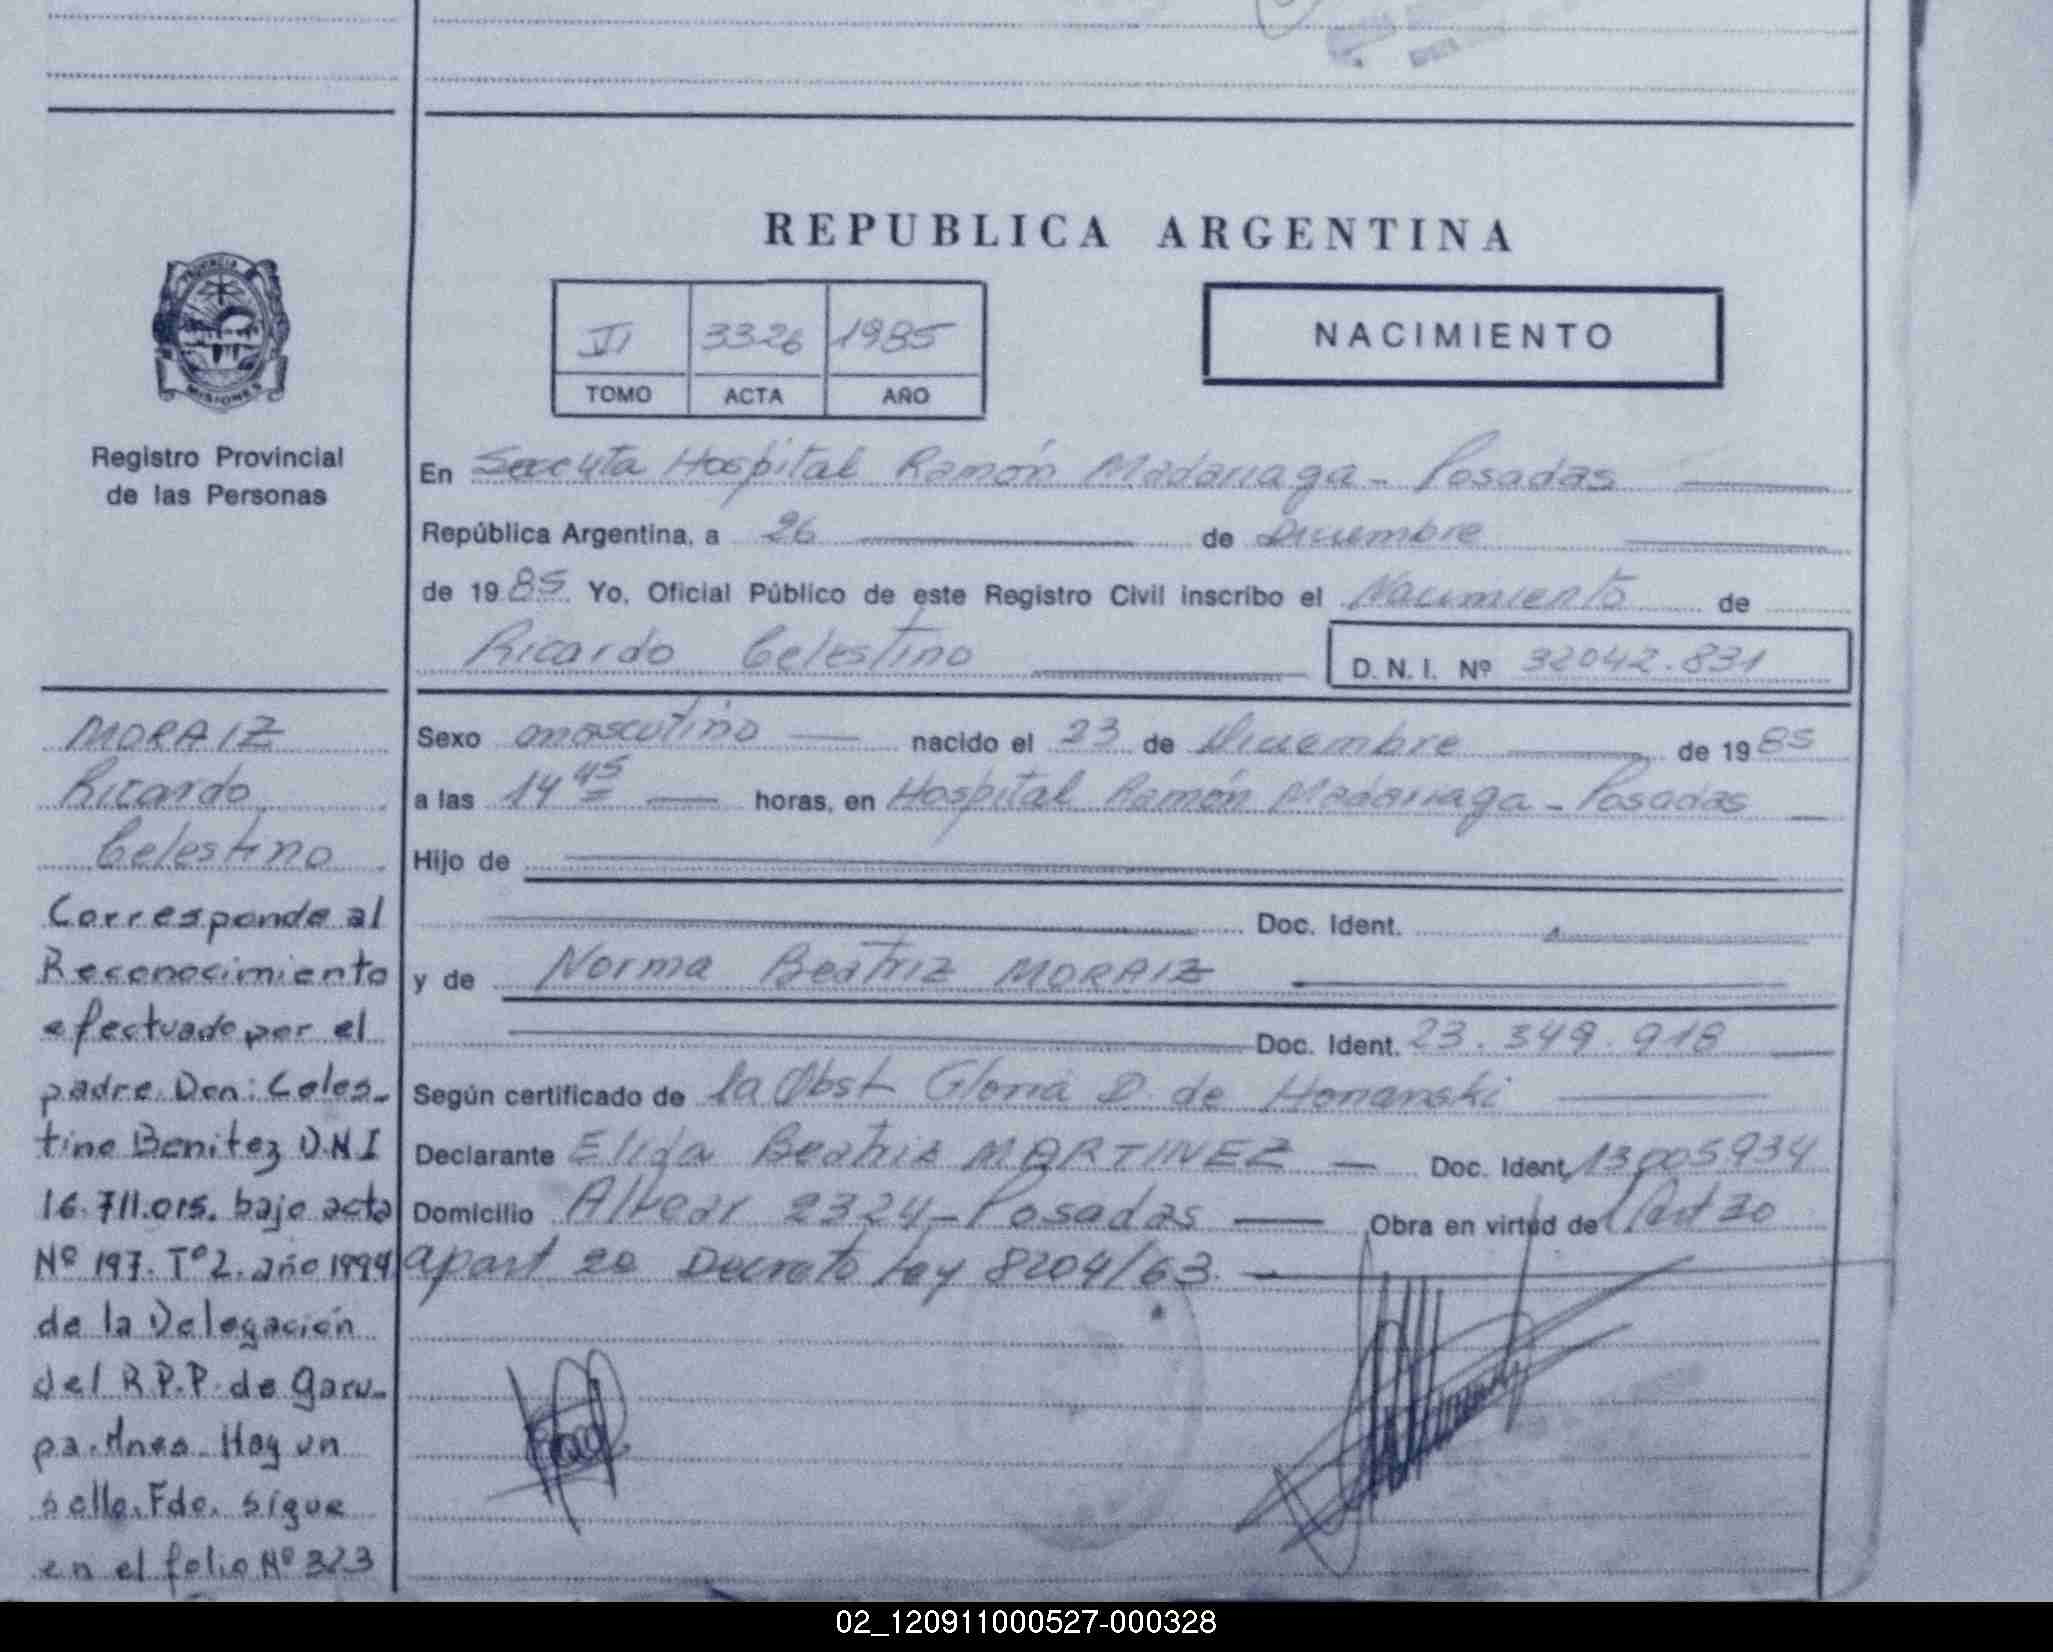 REPUBLICA ARGENTINA
PROVINCIA
MISIONES
Registro Provincial
de las Personas
3326 1985
TOMO ACTA AÑO
NACIMIENTO
En Hospital Ramón Madariaga - Posadas
República Argentina, a 26 de Diciembre
de 1985 Yo, Oficial Público de este Registro Civil inscribo el Nacimiento de
Ricardo Celestino D. N. I. Nº 32042.831
Sexo masculino nacido el 23 de Diciembre de 1985
a las 14 45 horas, en Hospital Ramón Madariaga - Posadas
Hijo de
Doc. Ident.
y de Norma Beatriz MORAIZ
Doc. Ident. 23.349.918
Según certificado de la Obst Gloria D. de
Declarante Elida Beatriz MARTINEZ Doc. Ident. 13005934
Domicilio Alvear 2324 - Posadas Obra en virtud del Art 30
apart 2o Decreto Ley 8204/63.
MORAIZ
Ricardo
Celestino
Corresponde al
Reconocimiento
efectuado por el
padre Don: Celes-
tino Benitez D.N.I
16.711.015. bajo acta
Nº 197. Tº 2. año 1994
de la Delegación
del R.P.P. de Garu-
pa. Mnes. Hay un
sello. Fdo. sigue
en el folio Nº 323
02_120911000527-000328